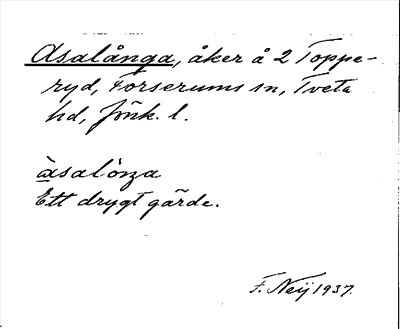 Asalånga, åker å 2 Toppe-
ryd, Forserums sn, Tveta
hd, Jönk. l.
àsalòŋa
Ett drygt gärde.
F. Neij 1937.